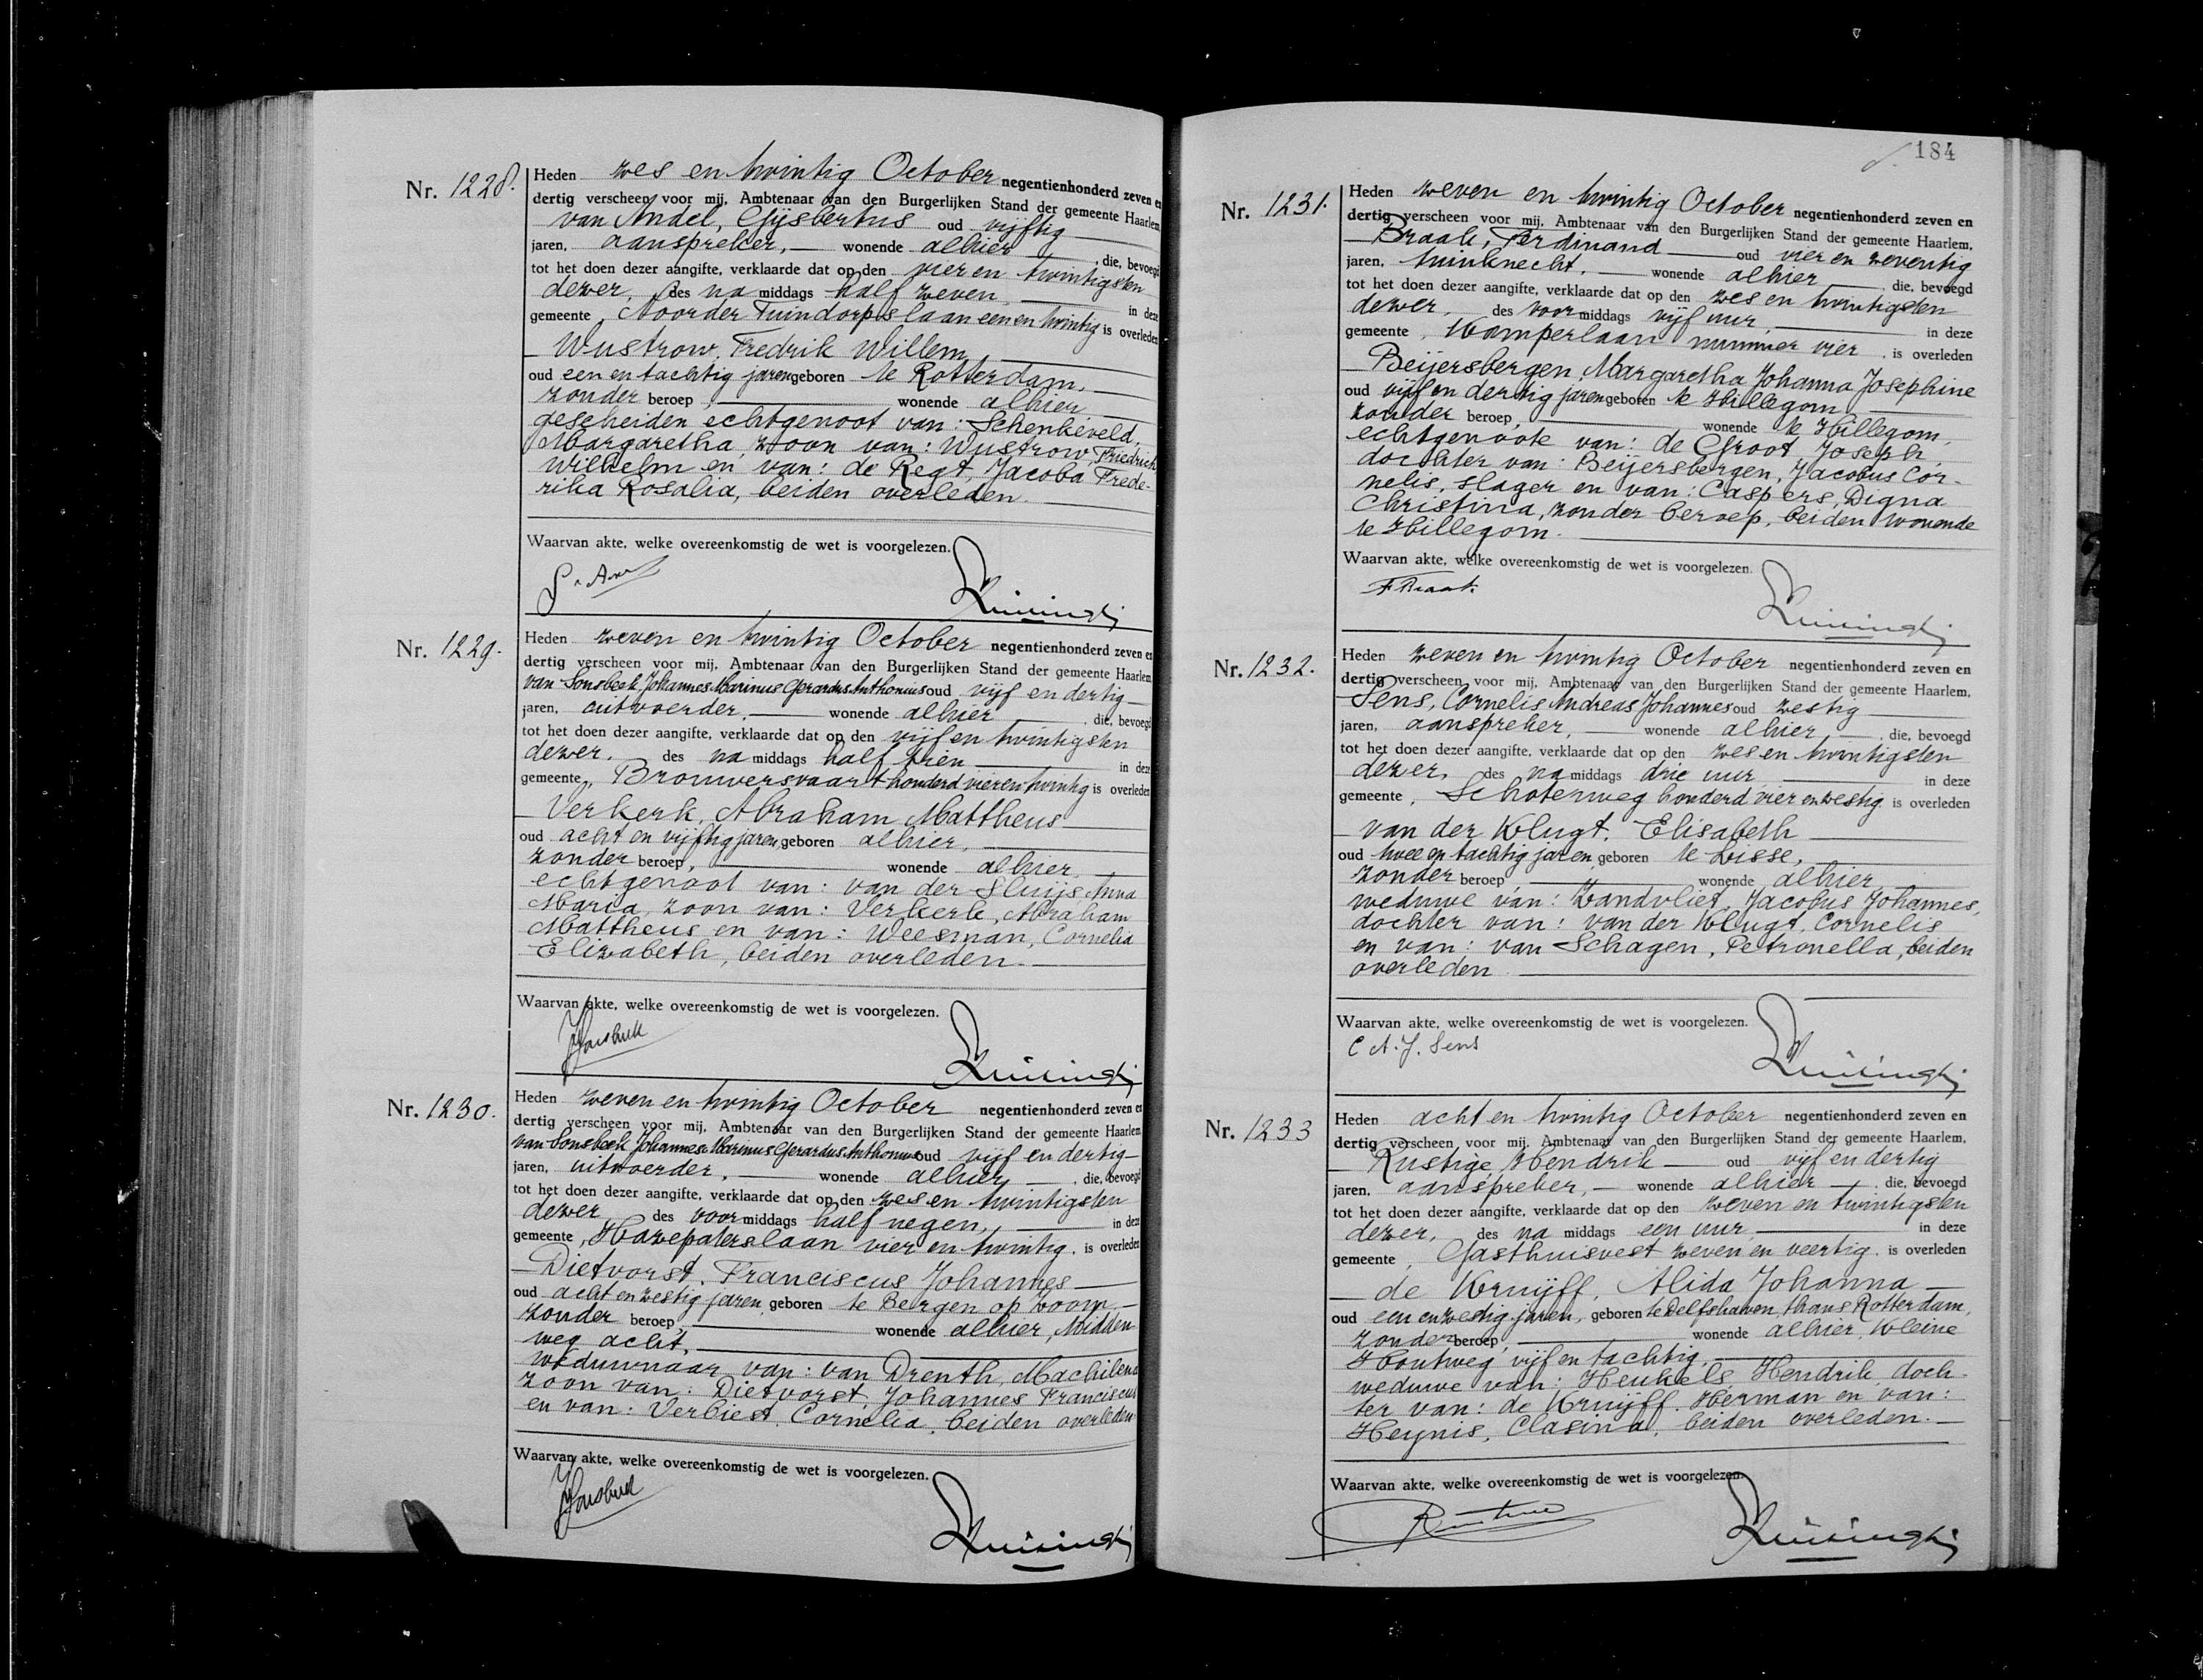 Nr. 1228.
Heden zes en twintig October negentienhonderd zeven en
dertig verscheen voor mij, Ambtenaar van den Burgerlijken Stand der gemeente Haarlem,
van Andel, Gijsbertus oud vijftig
jaren, aanspreker, wonende alhier, die, bevoegd
tot het doen dezer aangifte, verklaarde dat op den vier en twintigsten
dezer, des namiddags half zeven in deze
gemeente, Noorder Tuindorpslaan een en twintig is overleden
Wustrow, Fredrik Willem,
oud een en tachtig jaren geboren te Rotterdam,
zonder beroep, wonende alhier,
gescheiden echtgenoot van: Schenkeveld,
Margaretha, zoon van: Wustrow, Friedrich
Wilhelm en van: de Regt, Jacoba Frede-
rika Rosalia, beiden overleden.
Waarvan akte, welke overeenkomstig de wet is voorgelezen.
Nr. 1229.
Heden zeven en twintig October negentienhonderd zeven en
dertig verscheen voor mij, Ambtenaar van den Burgerlijken Stand der gemeente Haarlem,
van Sonsbeek Johannes Marinus Gerardus Anthonius oud vijf en dertig
jaren, uitvoerder, wonende alhier, die, bevoegd
tot het doen dezer aangifte, verklaarde dat op den vijf en twintigsten
dezer, des namiddags half tien in deze
gemeente, Brouwersvaart honderd vier en twintig is overleden
Verkerk, Abraham Mattheus
oud acht en vijftig jaren, geboren alhier,
zonder beroep, wonende alhier,
echtgenoot van: van der Sluijs Anna
Maria, zoon van: Verkerk, Abraham
Mattheus en van: Weesman, Cornelia
Elizabeth, beiden overleden.
Waarvan akte, welke overeenkomstig de wet is voorgelezen.
Nr. 1230.
Heden zeven en twintig October negentienhonderd zeven en
dertig verscheen voor mij, Ambtenaar van den Burgerlijken Stand der gemeente Haarlem,
van Sonsbeek Johannes Marinus Gerardus Anthonius oud vijf en dertig
jaren, uitvoerder, wonende alhier, die, bevoegd
tot het doen dezer aangifte, verklaarde dat op den zes en twintigsten
dezer, des voormiddags half negen, in deze
gemeente, Hazepaterslaan vier en twintig, is overleden
Dietvorst, Franciscus Johannes
oud acht en zestig jaren, geboren te Bergen op Zoom,
zonder beroep, wonende alhier, Midden
weg acht,
weduwnaar van: van Drenth, Machilena
zoon van: Dietvorst, Johannes Franciscus
en van: Verbiest, Cornelia, beiden overleden.
Waarvan akte, welke overeenkomstig de wet is voorgelezen.
184
Nr. 1231.
Heden zeven en twintig October negentienhonderd zeven en
dertig verscheen voor mij, Ambtenaar van den Burgerlijken Stand der gemeente Haarlem,
Braak, Ferdinand oud vier en zeventig
jaren, tuinknecht, wonende alhier, die, bevoegd
tot het doen dezer aangifte, verklaarde dat op den zes en twintigsten
dezer, des voormiddags vijf uur, in deze
gemeente, Kamperlaan nummer vier, is overleden
Beijersbergen, Margaretha Johanna Josephine
oud vijf en dertig jaren geboren te Hillegom
zonder beroep, wonende te Hillegom,
echtgenoote van: de Groot Joseph,
dochter van: Beijersbergen, Jacobus Cor-
nelis, slager en van: Caspers, Digna
Christina, zonder beroep, beiden wonende
te Hillegom.
Waarvan akte, welke overeenkomstig de wet is voorgelezen.
F. Braak.
Nr. 1232.
Heden zeven en twintig October negentienhonderd zeven en
dertig verscheen voor mij, Ambtenaar van den Burgerlijken Stand der gemeente Haarlem,
Sens, Cornelis Andreas Johannes oud zestig
jaren, aanspreker, wonende alhier, die, bevoegd
tot het doen dezer aangifte, verklaarde dat op den zes en twintigsten
dezer, des namiddags drie uur, in deze
gemeente, Schoterweg honderd vier en zestig is overleden
van der Klugt, Elisabeth
oud twee en tachtig jaren, geboren te Lisse,
zonder beroep, wonende alhier
weduwe van: Zandvliet, Jacobus Johannes,
dochter van: van der Klugt, Cornelis
en van: van Schagen, Petronella, beiden
overleden.
Waarvan akte, welke overeenkomstig de wet is voorgelezen.
C A. J. Sens
Nr. 1233
Heden acht en twintig October negentienhonderd zeven en
dertig verscheen voor mij, Ambtenaar van den Burgerlijken Stand der gemeente Haarlem,
Rustige, Hendrik oud vijf en dertig
jaren, aanspreker, wonende alhier, die, bevoegd
tot het doen dezer aangifte, verklaarde dat op den zeven en twintigsten
dezer, des namiddags een uur, in deze
gemeente, Gasthuisvest zeven en veertig, is overleden
de Kruijff, Alida Johanna
oud een en zestig jaren, geboren te Delfshaven, thans Rotterdam,
zonder beroep, wonende alhier, Kleine
Houtweg vijf en tachtig,
weduwe van: Henkels Hendrik, doch-
ter van: de Kruijff, Herman en van:
Heijnis, Clasina, beiden overleden.
Waarvan akte, welke overeenkomstig de wet is voorgelezen.